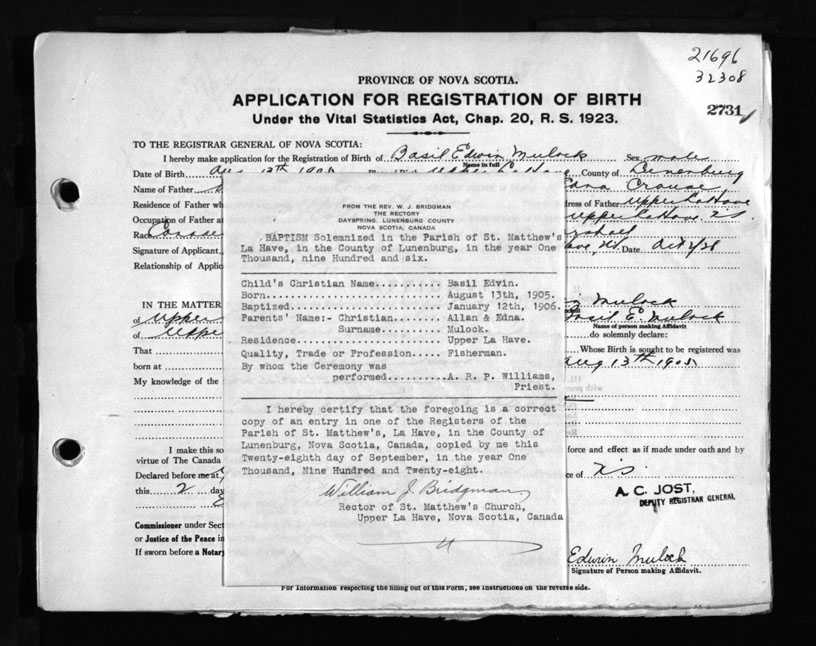 21696
32308
2731
PROVINCE OF NOVA SCOTIA.
APPLICATION FOR REGISTRATION OF BIRTH
Under the Vital Statistics Act, Chap. 20, R. S. 1923.
TO THE REGISTRAR GENERAL OF NOVA SCOTIA:
I hereby make application for the Registration of Birth of Basil Edwin Mulock Sex male
Name in full
Date of Birth Aug 13th 1905 Upper La Have County of Lunenburg
Name of Father Edna Crouse
Residence of Father wh dress of Father Upper La Have
Occupation of Father at Upper La Have. N.S.
Race Canad
Signature of Applicant Date Oct 2/28
Relationship of Applic
FROM THE REV. W. J. BRIDGMAN
THE RECTORY
DAYSPRING, LUNENBURG COUNTY
NOVA SCOTIA, CANADA
BAPTISM Solemnized in the Parish of St. Matthew's
La Have, in the County of Lunenburg, in the year One
Thousand, nine Hundred and six.
Child's Christian Name.......... Basil Edvin.
Born............................ August 13th, 1905.
Baptized........................ January 12th, 1906.
Parents' Name:- Christian....... Allan & Edna.
Surname.......... Mulock.
Residence....................... Upper La Have.
Quality, Trade or Profession..... Fisherman.
By whom the Ceremony was
performed..........A. R. P. Williams,
Priest.
I hereby certify that the foregoing is a correct
copy of an entry in one of the Registers of the
Parish of St. Matthew's, La Have, in the County of
Lunenburg, Nova Scotia, Canada, copied by me this
Twenty-eighth day of September, in the year One
Thousand, Nine Hundred and Twenty-eight.
William J. Bridgman
Rector of St. Matthew's Church,
Upper La Have, Nova Scotia, Canada
IN THE MATTER Mulock
of Upper Basil E Mulock
Name of person making Affidavit
of Uppe do solemnly declare:
That Whose Birth is sought to be registered was
born at Aug 13th 1905
My knowledge of the
I make this so force and effect as if made under oath and by
virtue of The Canada
Declared before me at ce of N.S.
this 2 day
A. C. JOST,
DEPUTY REGISTRAR GENERAL
Commissioner under Sect
or Justice of the Peace in
If sworn before a Notary
Edwin Mulock
Signature of Person making Affidavit.
For Information respecting the filling out of this Form, see Instructions on the reverse side.